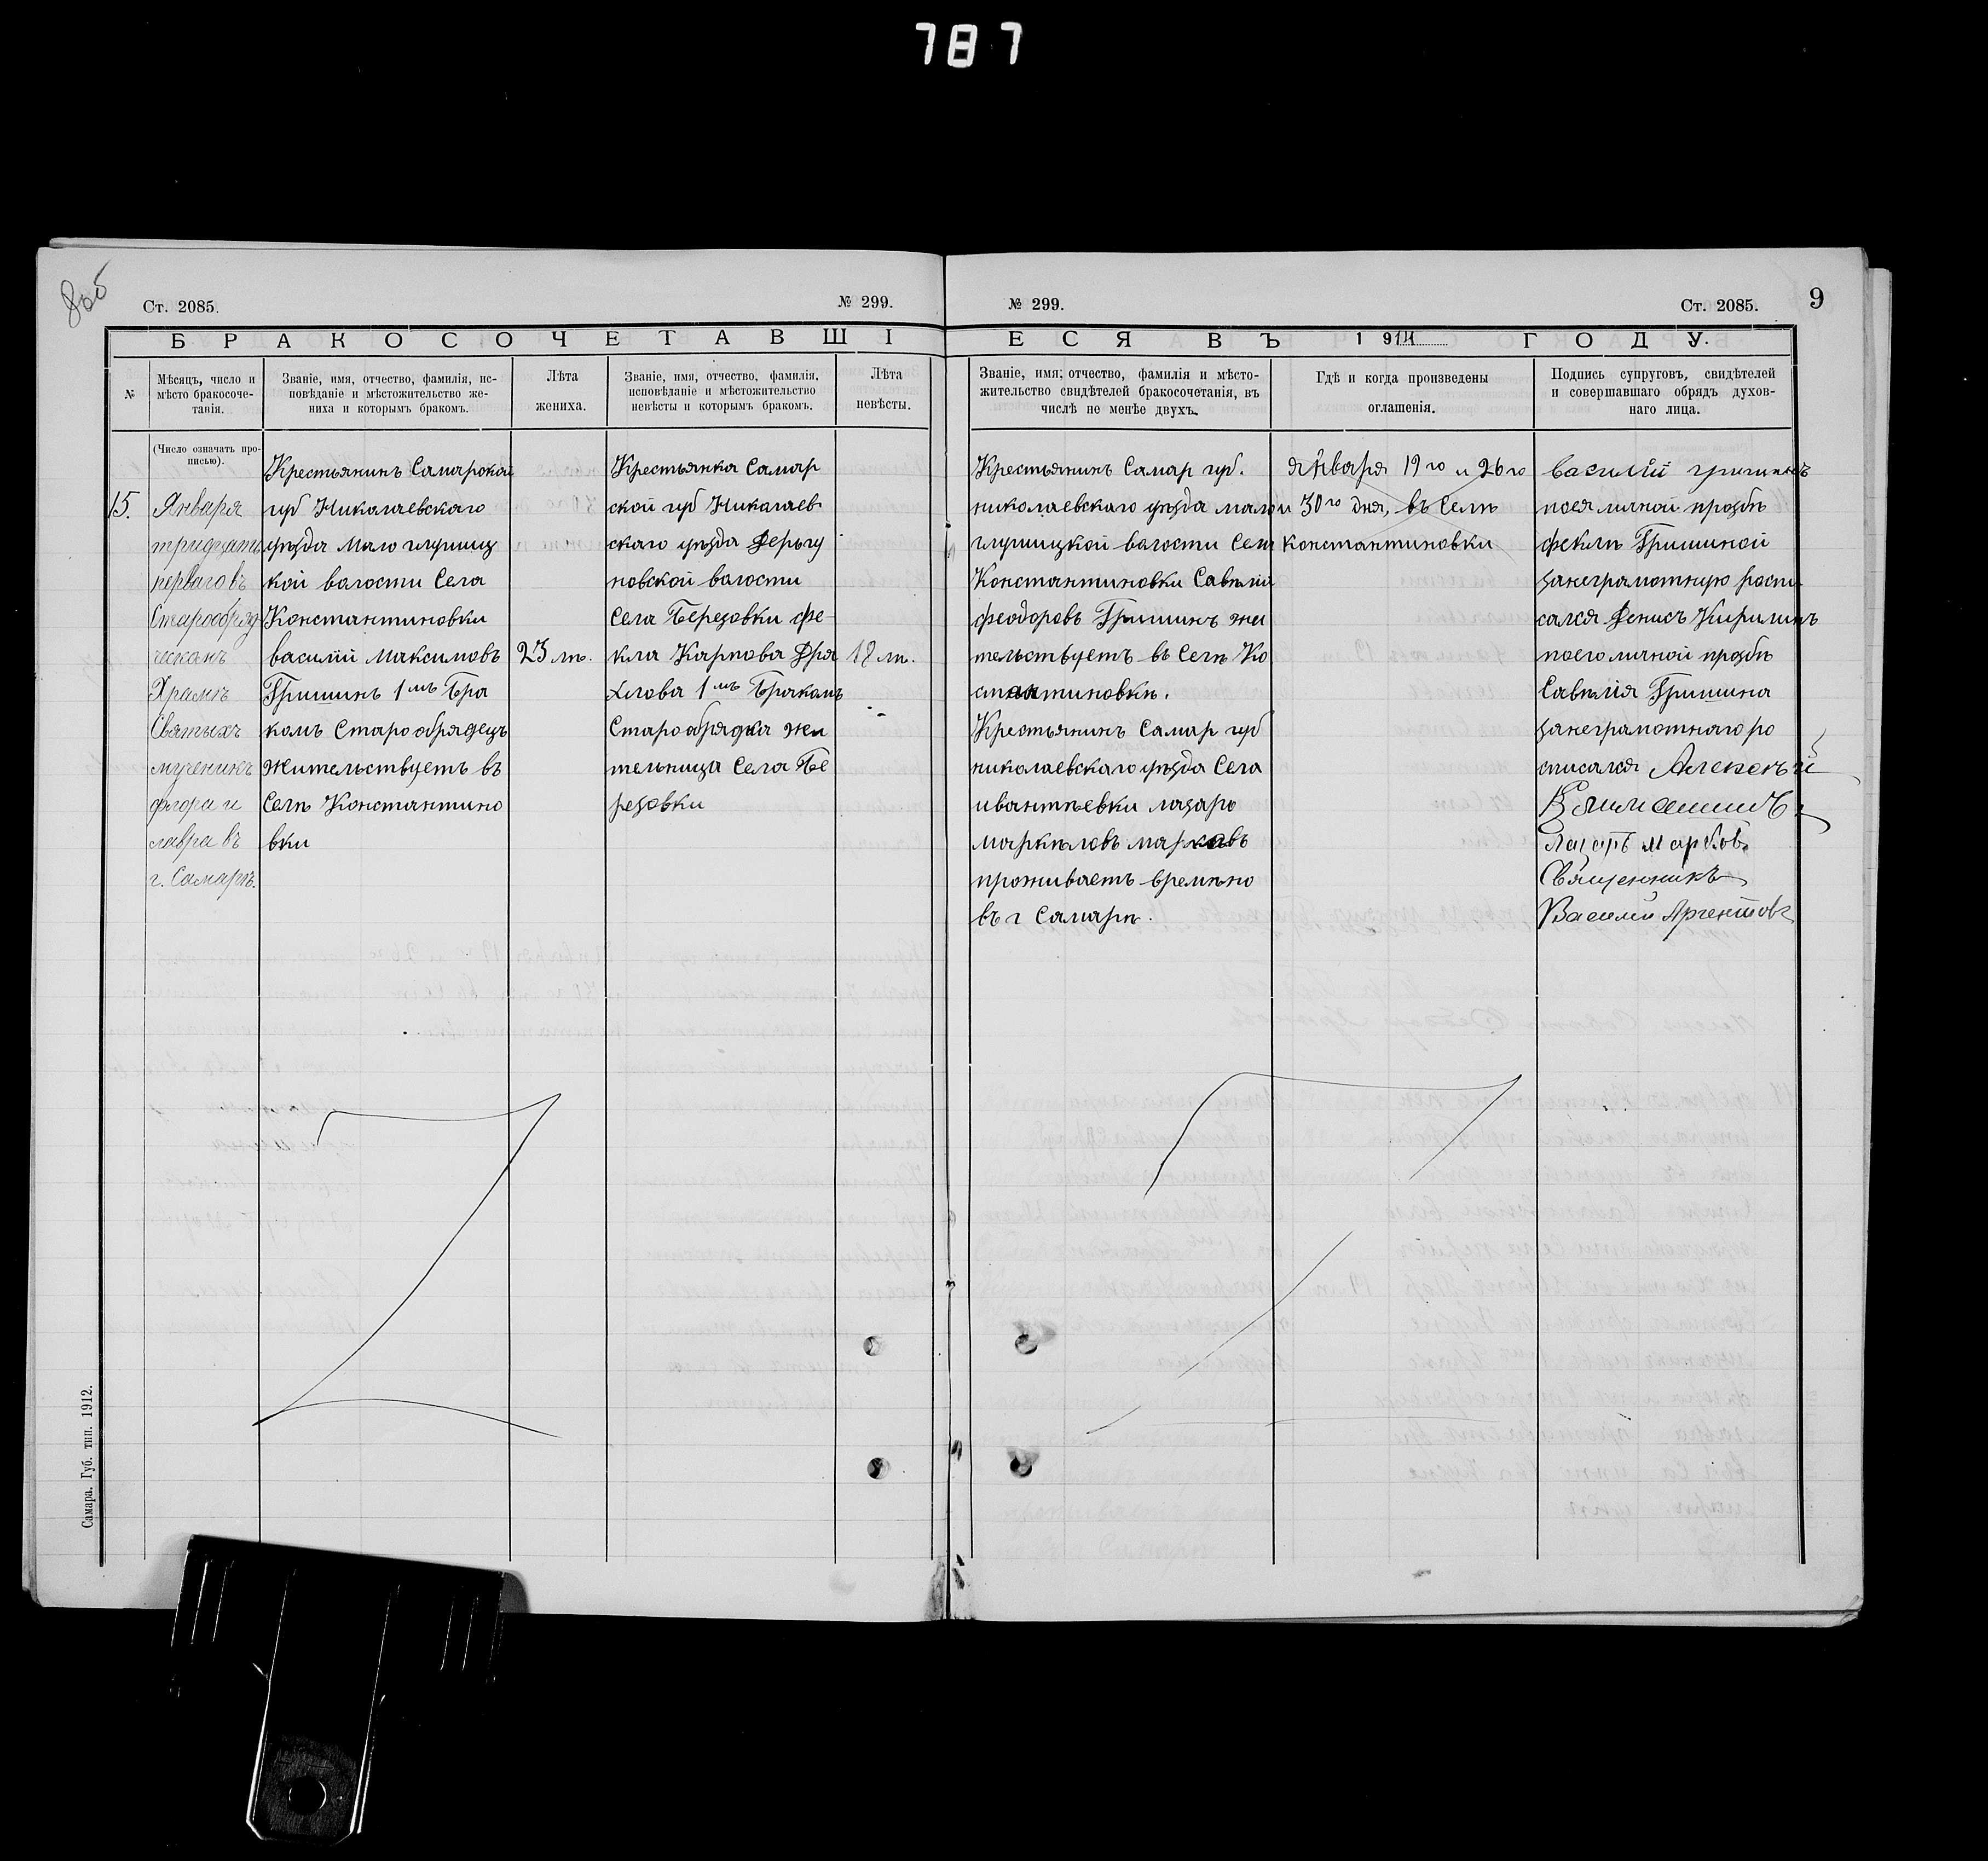 787
8об
Ст. 2085.
№ 299.
№ 299.
Ст. 2085.
9
БРАКОСОЧЕТАВШІ
ЕСЯ ВЪ 1914 ГОДУ.
№
Мѣсяцъ, число и
мѣсто бракосоче-
танія.
Званіе, имя, отчество, фамилія, ис-
повѣданіе и мѣстожительство же-
ниха и которымъ бракомъ.
Лѣта
жениха.
Званіе, имя, отчество, фамилія,
исповѣданіе и мѣстожительство
невѣсты и которымъ бракомъ.
Лѣта
невѣсты.
Званіе, имя, отчество, фамилія и мѣсто-
жительство свидѣтелей бракосочетанія, въ
числѣ не менѣе двухъ.
Гдѣ и когда произведены
оглашенія.
Подпись супруговъ, свидѣтелей
и совершавшаго обрядъ духов-
наго лица.
(Число означать про-
писью).
15.
Января
тридцать
перваго въ
Старообряд
ческомъ
Храмѣ
Святыхъ
мученикъ
флора и
лавра въ
г. Самарѣ.
Крестьянинъ Самарской
губ Николаевскаго
уѣзда Мало глушиц
кой валости Села
Константиновки
василій Максимовъ
Гришинъ 1мъ Бра
комъ Старообрядецъ
жительствуетъ въ
Селѣ Константино
вки
23 лѣ.
Крестьянка Самар
ской губ Николаев
скаго уѣзда Дерьгу
новской валости
Села Березовки фе-
кла Карпова Фра
лова 1мъ Бракомъ
Старообрядка жи
тельница Села Бе
резовки
18 лѣ.
Крестьянинъ Самар губ.
николаевскаго уѣзда малой
глушицкой валости Села
Константиновки Савѣлій
феодоровъ Гришинъ жи
тельствуетъ въ Селѣ Ко
стантиновкѣ.
Крестьянинъ Самар губ
николаевскаго уѣзда Села
ивантѣевки лазарь
маркѣловъ марковъ
проживаетъ времѣно
въ г Самарѣ.
января 19го и 26го
30го дня, въ Селѣ
константиновки
василій гришинъ
поея личной прозбѣ
феклы Гришиной
занеграмотную распи
сался Денисъ Кирилинъ
поего личной прозбѣ
Савѣлія Гришина
занеграмотнаго ро
списался Алексѣй
Лазарь Марковъ
Священникъ
Василій Аргентовъ
Самара. Губ. тип. 1912.